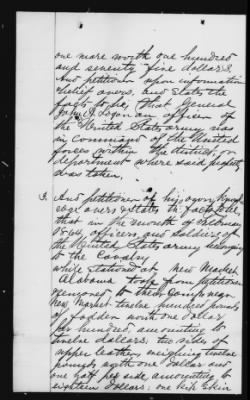 one mare worth one hundred
and seventy five dollars.
And petitioner upon information
& belief avers, and states the
fact to be, that General
John A. Logan an officer of
the United States army was
in command of the United
forces within the district or
department where said property
was taken.
3. And petitioner of his own knowl
eage avers & states the fact to be
that in the month of
1864, officers and soldiers of
the United States army belonging
to the Cavalry
while stationed at New Market
Alabama took from petitioner
removed to their camp near
New Market twelve hundred pounds
of fodder worth one dollar
per hundred amounting to
twelve dollars; two sides of
upper leather, weighing twelve
pounds worth one dollar and
one half per side amounting to
eighteen dollars; one kip skin